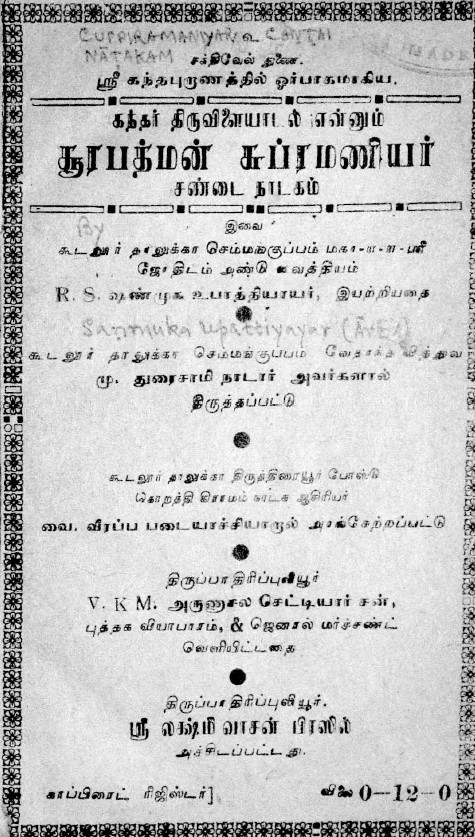 CUPPIRAMANIYAR CANTAI
NĀTAKAM
சக்திவேல் துணை.
ஸ்ரீ கந்தபுராணத்தில் ஓர்பாகமாகிய.
கந்தர் திருவிளையாடல் என்னும்
சூரபத்மன் சுப்ரமணியர்
சண்டை நாடகம்
By
இவை
கூடலூர் தாலுக்கா செம்மங்குப்பம் மகா-ஈ-ஈ-ஸ்ரீ
ஜோதிடம் அண்டு வைத்தியம்
R. S. ஷண்முக உபாத்தியாயர், இயற்றியதை
Sanmuka upattiyayar
கூடலூர் தாலுக்கா செம்மங்குப்பம் வேதாந்த வித்துவ
மு. துரைசாமி நாடார் அவர்களால்
திருத்தப்பட்டு
கூடலூர் தாலுக்கா திருத்திரையூர் போஸ்டு
கொறத்தி கிராமம் நாடக ஆசிரியர்
வை. வீரப்ப படையாச்சியாரால் அரங்சேற்றப்பட்டு
திருப்பாதிரிப்புலியூர்
V. K M. அருணாசல செட்டியார் சன்,
புத்தக வியாபாரம், & ஜெனரல் மர்ச்சண்ட்
வெளியிட்டதை
திருப்பாதிரிப்புலியூர்.
ஸ்ரீ லக்ஷ்மி வாசன் பிரஸில்
அச்சிடப்பட்டது.
காப்பிரைட் ரிஜிஸ்டர்] விலை 0-12-0